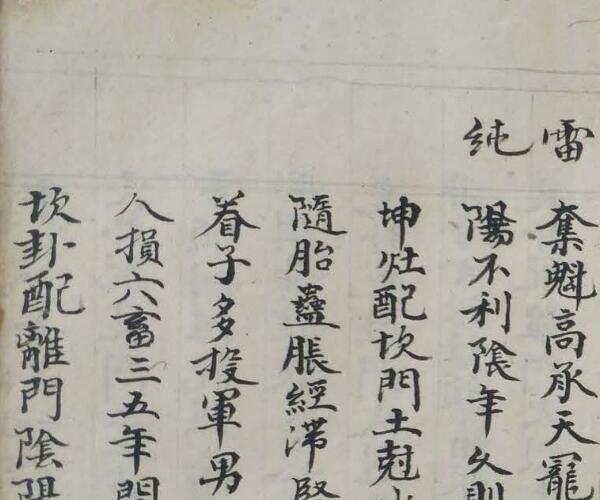 雷奪魁高承天寵
純陽不利陰年久則
坤灶配坎門土尅水
隨胎蠱脹經滯腎
眷子多投軍男
人損六畜三五年間
坎卦配離門陰陽